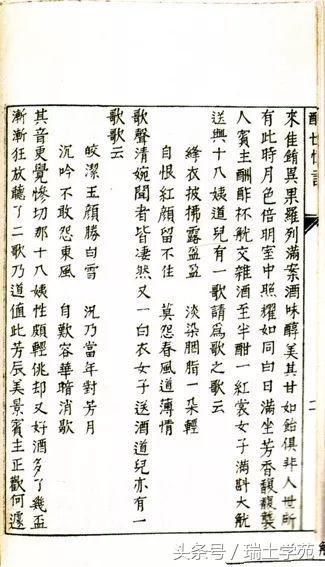 醒世恒言
二
來佳餚異果羅列滿案酒味醇美其甘如飴俱非人世所
有此時月色倍明室中照耀如同白日滿坐芳香馥馥襲
人賓主酬酢杯觥交雜酒至半酣一紅裳女子滿斟大觥
送與十八姨道兒有一歌請爲歌之歌云
絳衣披拂露盈盈 淡染胭脂一朵輕
自恨紅顏留不住 莫怨春風道薄情
歌聲清婉聞者皆凄然又一白衣女子送酒道兒亦有一
歌歌云
皎潔玉顏勝白雪 況乃當年對芳月
沉吟不敢怨東風 自歎容華暗消歇
其音更覺慘切那十八姨性頗輕佻却又好酒多了幾盃
漸漸狂放聽了二歌乃道值此芳辰美景賓主正歡何遽
头条号 / 瑞士学苑